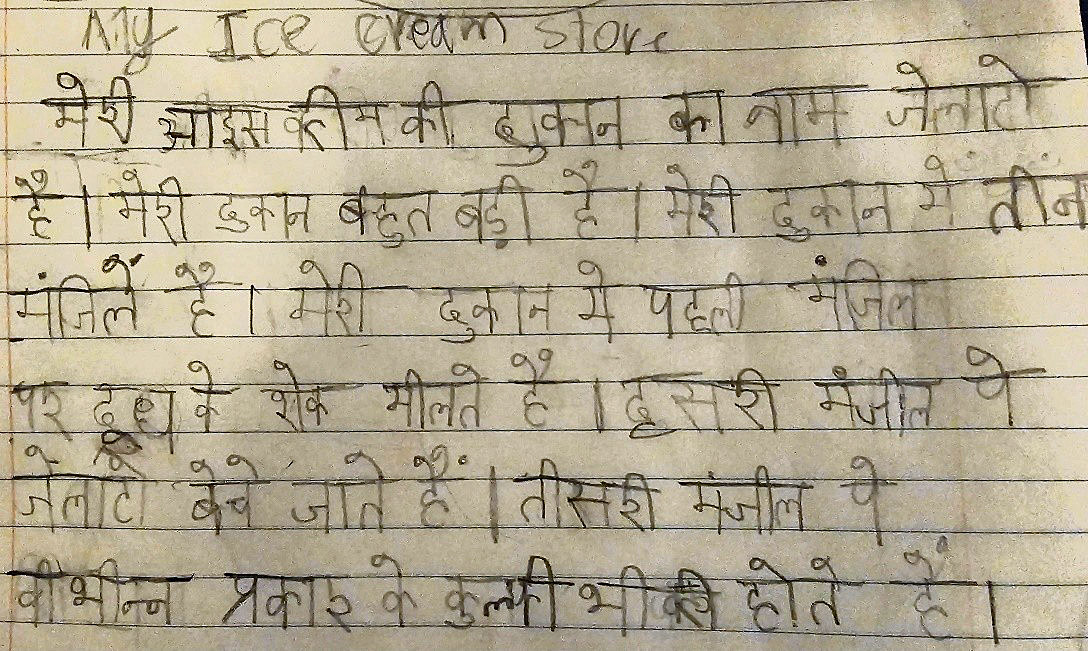 My Ice cream store
मेरी आइसक्रीम की दुकान का नाम जेलाटो
है। मेरी दुकान बहुत बड़ी है। मेरी दुकान में तीन
मंजिलें है। मेरी दुकान मे पहली मंजिल
पर दूध के शेक मीलते है। दूसरी मंजील पे
जेलाटो बेचे जाते हैं। तीसरी मंजील पे
वीभीन्न प्रकार के कुल्फी भी होते हैं।